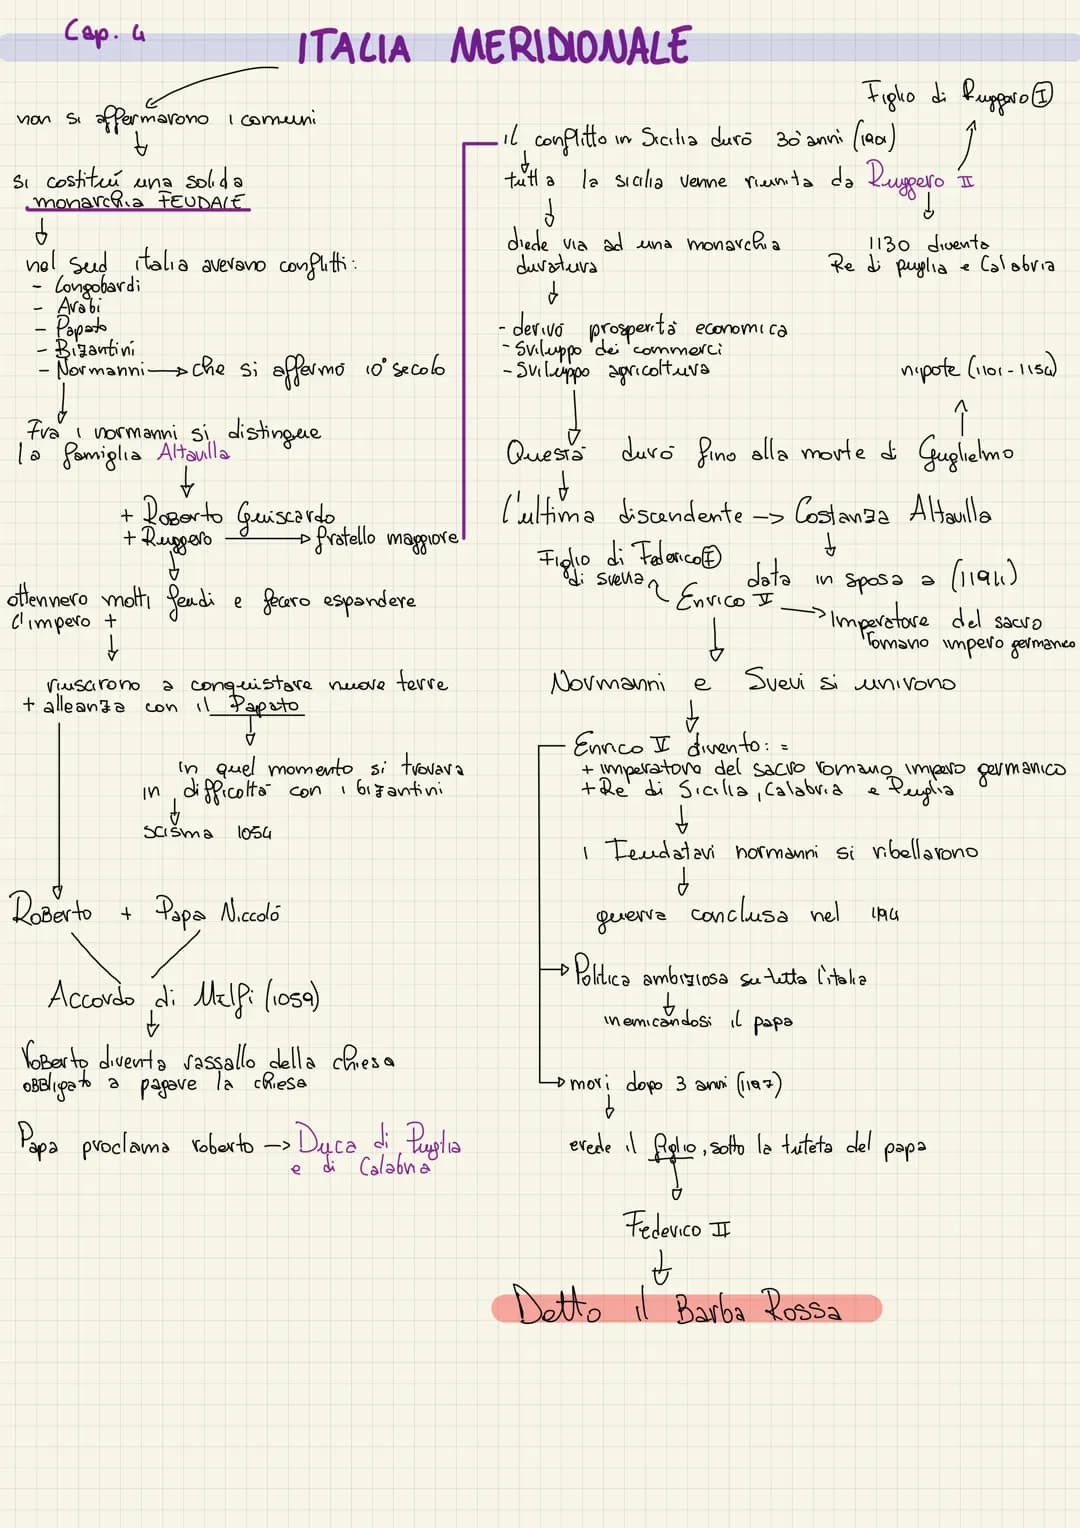 Cap. 4
ITALIA MERIDIONALE
non si affermarono i comuni
si costituí una solida
monarchia FEUDALE
nel Sud italia averano conflitti:
- Longobardi
- Arabi
- Papato
- Bizantini
- Normanni → che si affermò 10° secolo
Fra i normanni si distingue
la famiglia Altavilla
+ Roberto Guiscardo
+ Ruggero → fratello maggiore
ottennero molti feudi e fecero espandere
l'impero +
riuscirono a conquistare nuove terre
+ alleanza con il Papato
in quel momento si trovava
in difficoltà con i bizantini
scisma 1054
Roberto + Papa Niccoló
Accordo di Melfi (1059)
Roberto diventa vassallo della chiesa
obbligato a pagare la chiesa
Papa proclama roberto → Duca di Puglia
e di Calabria
Figlio di Ruggero I
il conflitto in Sicilia durò 30 anni (1901)
tutta la sicilia venne riunita da Ruggero II
diede via ad una monarchia
duratura
1130 diventa
Re di puglia e Calabria
- derivò prosperità economica
- Sviluppo dei commerci
- Sviluppo agricoltura
nipote (1101-1154)
Questa durò fino alla morte di Guglielmo
l'ultima discendente → Costanza Altavilla
Figlio di Federico I
di svevia
data in sposa a (1194)
Enrico V
→ Imperatore del sacro
romano impero germanico
Normanni e Svevi si unirono
Enrico V diventò: =
+ imperatore del sacro romano impero germanico
+ Re di Sicilia, Calabria e Puglia
i Feudatari normanni si ribellarono
guerra conclusa nel 1194
Politica ambiziosa su tutta l'italia
inemicandosi il papa
morí dopo 3 anni (1197)
erede il figlio, sotto la tuteta del papa
Federico II
Detto il Barba Rossa